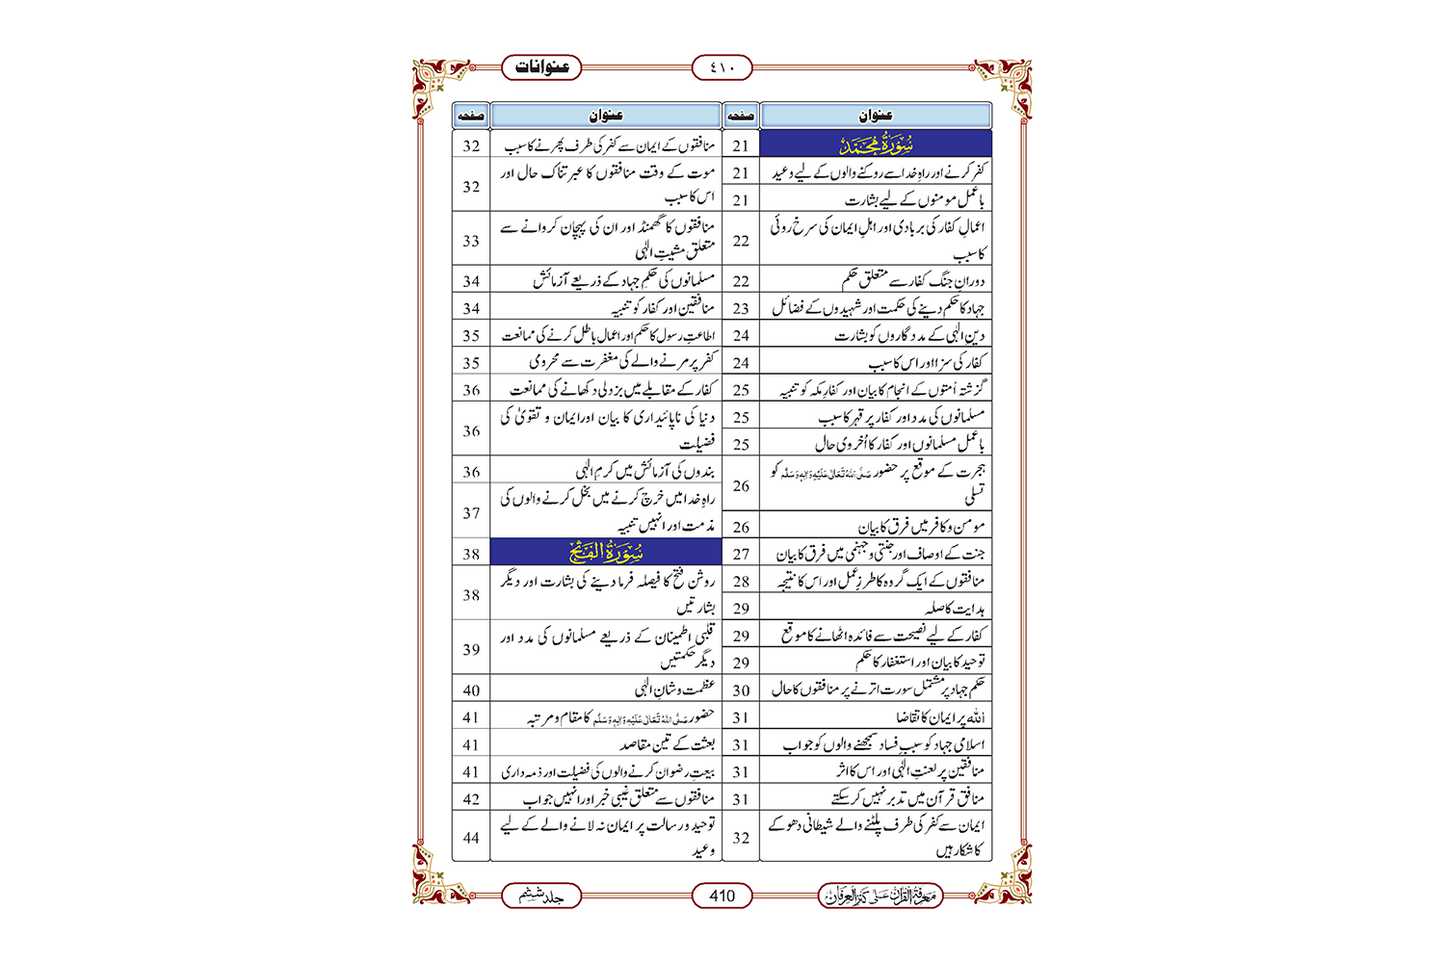 عنوانات
٤١٠
عنوان
صفحہ
سُوْرَۃُ مُحَمَّد
21
کفر کرنے اور راہِ خدا سے روکنے والوں کے لیے وعید
21
باعمل مومنوں کے لیے بشارت
21
اعمالِ کفار کی بربادی اور اہلِ ایمان کی سرخ روئی
کا سبب
22
دورانِ جنگ کفار سے متعلق حکم
22
جہاد کا حکم دینے کی حکمت اور شہیدوں کے فضائل
23
دینِ الٰہی کے مددگاروں کو بشارت
24
کفار کی سزا اور اس کا سبب
24
گزشتہ اُمتوں کے انجام کا بیان اور کفارِ مکہ کو تنبیہ
25
مسلمانوں کی مدد اور کفار پر قہر کا سبب
25
باعمل مسلمانوں اور کفار کا اُخروی حال
25
ہجرت کے موقع پر حضور صَلَّی اللہُ تَعَالٰی عَلَیْہِ وَاٰلِہٖ وَسَلَّم کو
تسلی
26
مومن و کافر میں فرق کا بیان
26
جنت کے اوصاف اور جنتی و جہنمی میں فرق کا بیان
27
منافقوں کے ایک گروہ کا طرزِ عمل اور اس کا نتیجہ
28
ہدایت کا صلہ
29
کفار کے لیے نصیحت سے فائدہ اٹھانے کا موقع
29
توحید کا بیان اور استغفار کا حکم
29
حکمِ جہاد پر مشتمل سورت اترنے پر منافقوں کا حال
30
اللہ پر ایمان کا تقاضا
31
اسلامی جہاد کو سببِ فساد سمجھنے والوں کو جواب
31
منافقین پر لعنتِ الٰہی اور اس کا اثر
31
منافق قرآن میں تدبر نہیں کرسکتے
31
ایمان سے کفر کی طرف پلٹنے والے شیطانی دھوکے
کا شکار ہیں
32
عنوان
صفحہ
منافقوں کے ایمان سے کفر کی طرف پھرنے کا سبب
32
موت کے وقت منافقوں کا عبرتناک حال اور
اس کا سبب
32
منافقوں کا گھمنڈ اور ان کی پہچان کروانے سے
متعلق مشیتِ الٰہی
33
مسلمانوں کی حکمِ جہاد کے ذریعے آزمائش
34
منافقین اور کفار کو تنبیہ
34
اطاعتِ رسول کا حکم اور اعمال باطل کرنے کی ممانعت
35
کفر پر مرنے والے کی مغفرت سے محرومی
35
کفار کے مقابلے میں بزدلی دکھانے کی ممانعت
36
دنیا کی ناپائیداری کا بیان اور ایمان و تقویٰ کی
فضیلت
36
بندوں کی آزمائش میں کرمِ الٰہی
36
راہِ خدا میں خرچ کرنے میں بخل کرنے والوں کی
مذمت اور انہیں تنبیہ
37
سُوْرَۃُ الْفَتْح
38
روشن فتح کا فیصلہ فرما دینے کی بشارت اور دیگر
بشارتیں
38
قلبی اطمینان کے ذریعے مسلمانوں کی مدد اور
دیگر حکمتیں
39
عظمت و شانِ الٰہی
40
حضور صَلَّی اللہُ تَعَالٰی عَلَیْہِ وَاٰلِہٖ وَسَلَّم کا مقام و مرتبہ
41
بعثت کے تین مقاصد
41
بیعتِ رضوان کرنے والوں کی فضیلت اور ذمہ داری
41
منافقوں سے متعلق غیبی خبر اور انہیں جواب
42
توحید و رسالت پر ایمان نہ لانے والے کے لیے
وعید
44
مَعْرِفَۃُ الْقُرْآن عَلٰی کَنْزِ الْعِرْفَان
410
جلد ششم